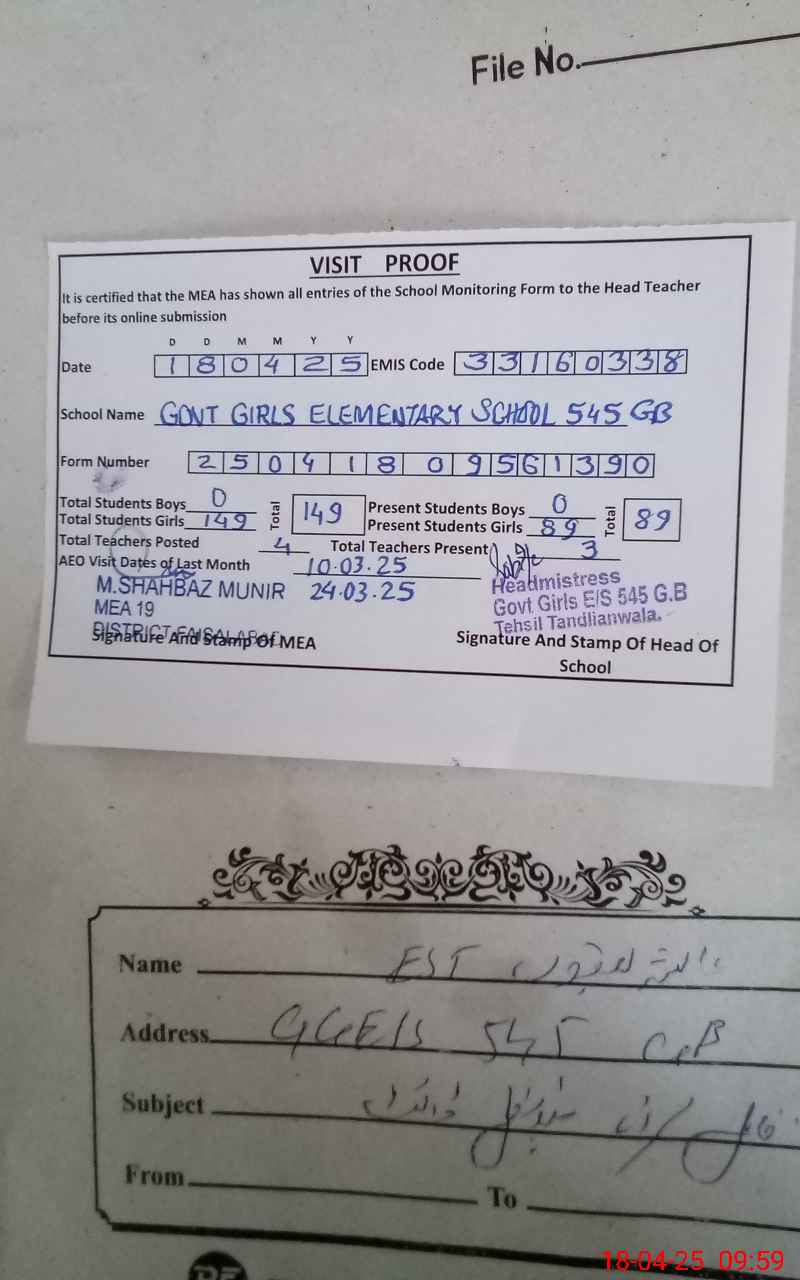 File No.
VISIT PROOF
It is certified that the MEA has shown all entries of the School Monitoring Form to the Head Teacher
before its online submission
D D M M Y Y
Date 180425 EMIS Code 33160338
School Name GOVT GIRLS ELEMENTARY SCHOOL 545 GB
Form Number 25041809561390
Total Students Boys 0 Total 149 Present Students Boys 0 Total 89
Total Students Girls 149 Present Students Girls 89
Total Teachers Posted 4 Total Teachers Present 3
AEO Visit Dates of Last Month 10.03.25
24.03.25
M.SHAHBAZ MUNIR
MEA 19
DISTRICT FAISALABAD
Signature And Stamp Of MEA
Headmistress
Govt Girls E/S 545 G.B
Tehsil Tandlianwala.
Signature And Stamp Of Head Of
School
Name EST
Address GGE/S 545 GB
Subject فائل
From To
18-04-25 09:59